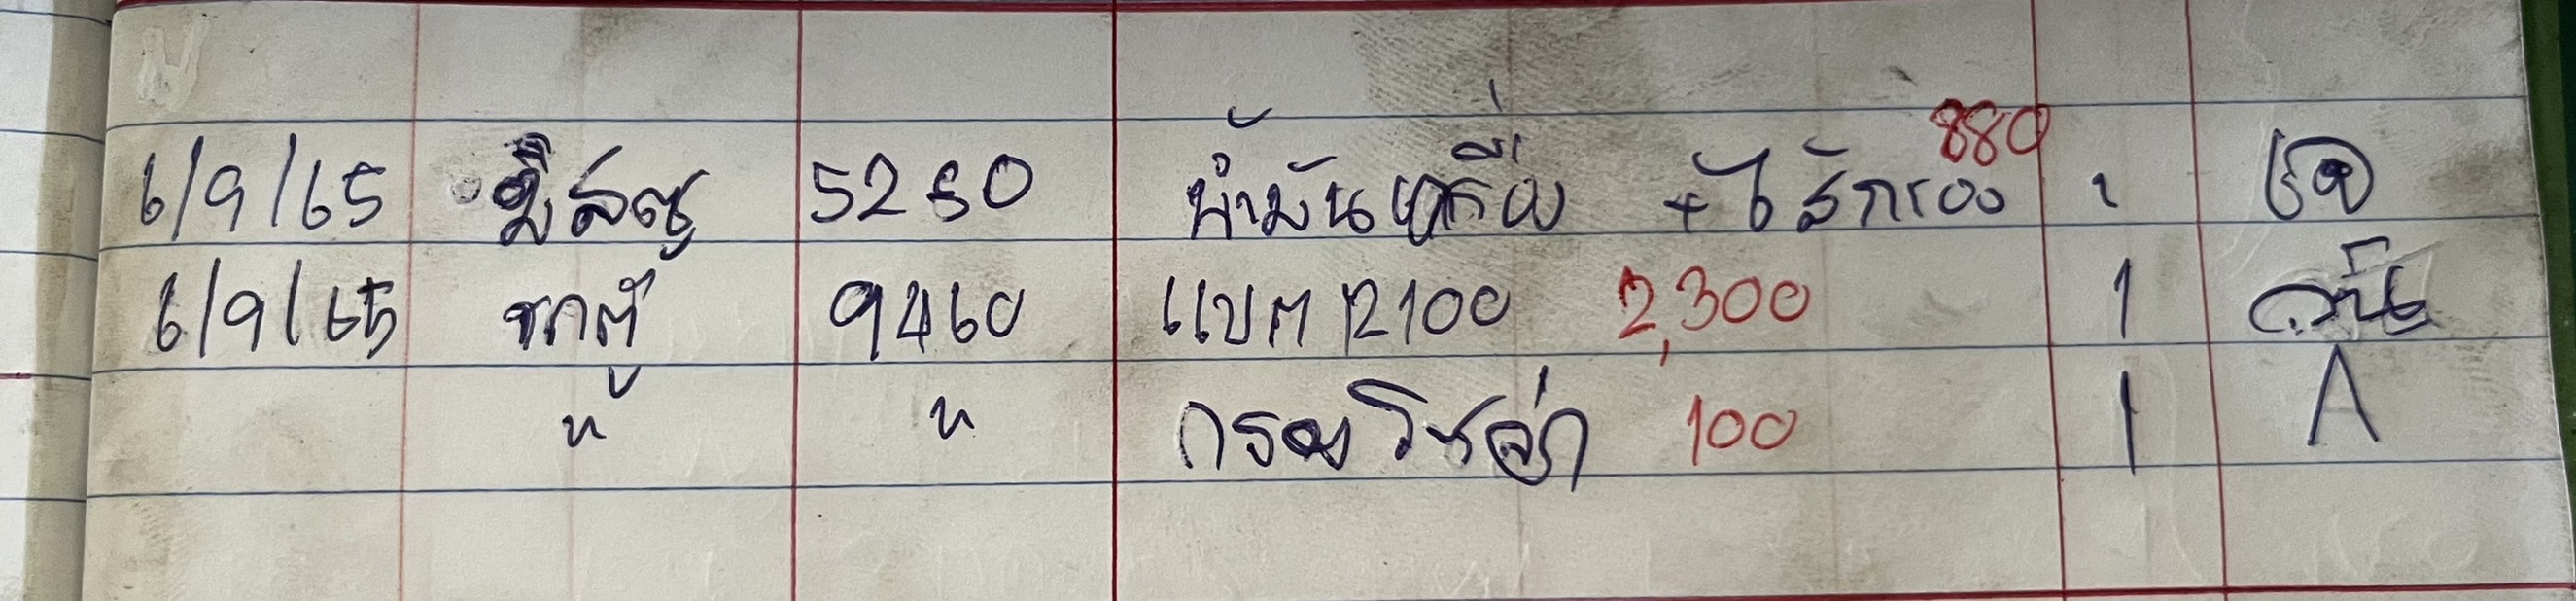 6/9/65 มิ้สซู 5250 น้ำมันเครื่อง + ไส้กรอง 880 1 เอ
6/9/65 รถตู้ 9460 แบต 12100 2,300 1
" " กรอง โซล่า 100 1 A